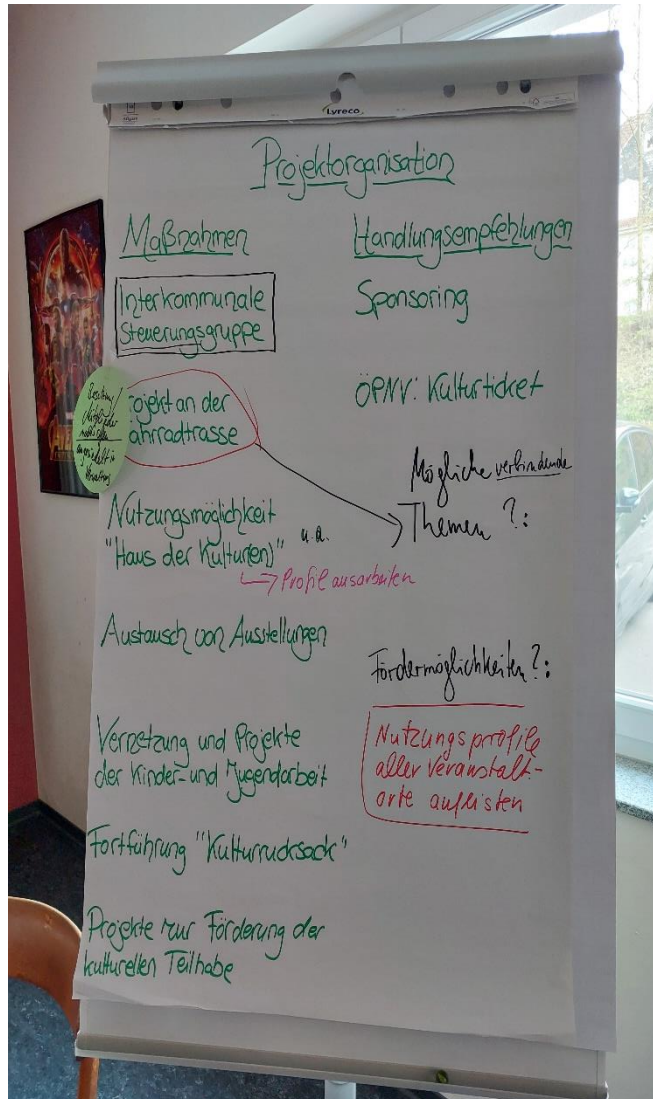 Lyreco
Projektorganisation
Maßnahmen
Interkommunale
Steuerungsgruppe
Projekt an der
Fahrradtrasse
Nutzungsmöglichkeit
"Haus der Kultur(en)" u.a.
→ Profil ausarbeiten
Austausch von Ausstellungen
Vernetzung und Projekte
der Kinder- und Jugendarbeit
Fortführung "Kulturrucksack"
Projekte zur Förderung der
kulturellen Teilhabe
Handlungsempfehlungen
Sponsoring
ÖPNV: Kulturticket
Mögliche verbindende
Themen ?:
Fördermöglichkeiten ?:
Nutzungsprofile
aller Veranstalt-
orte auflisten